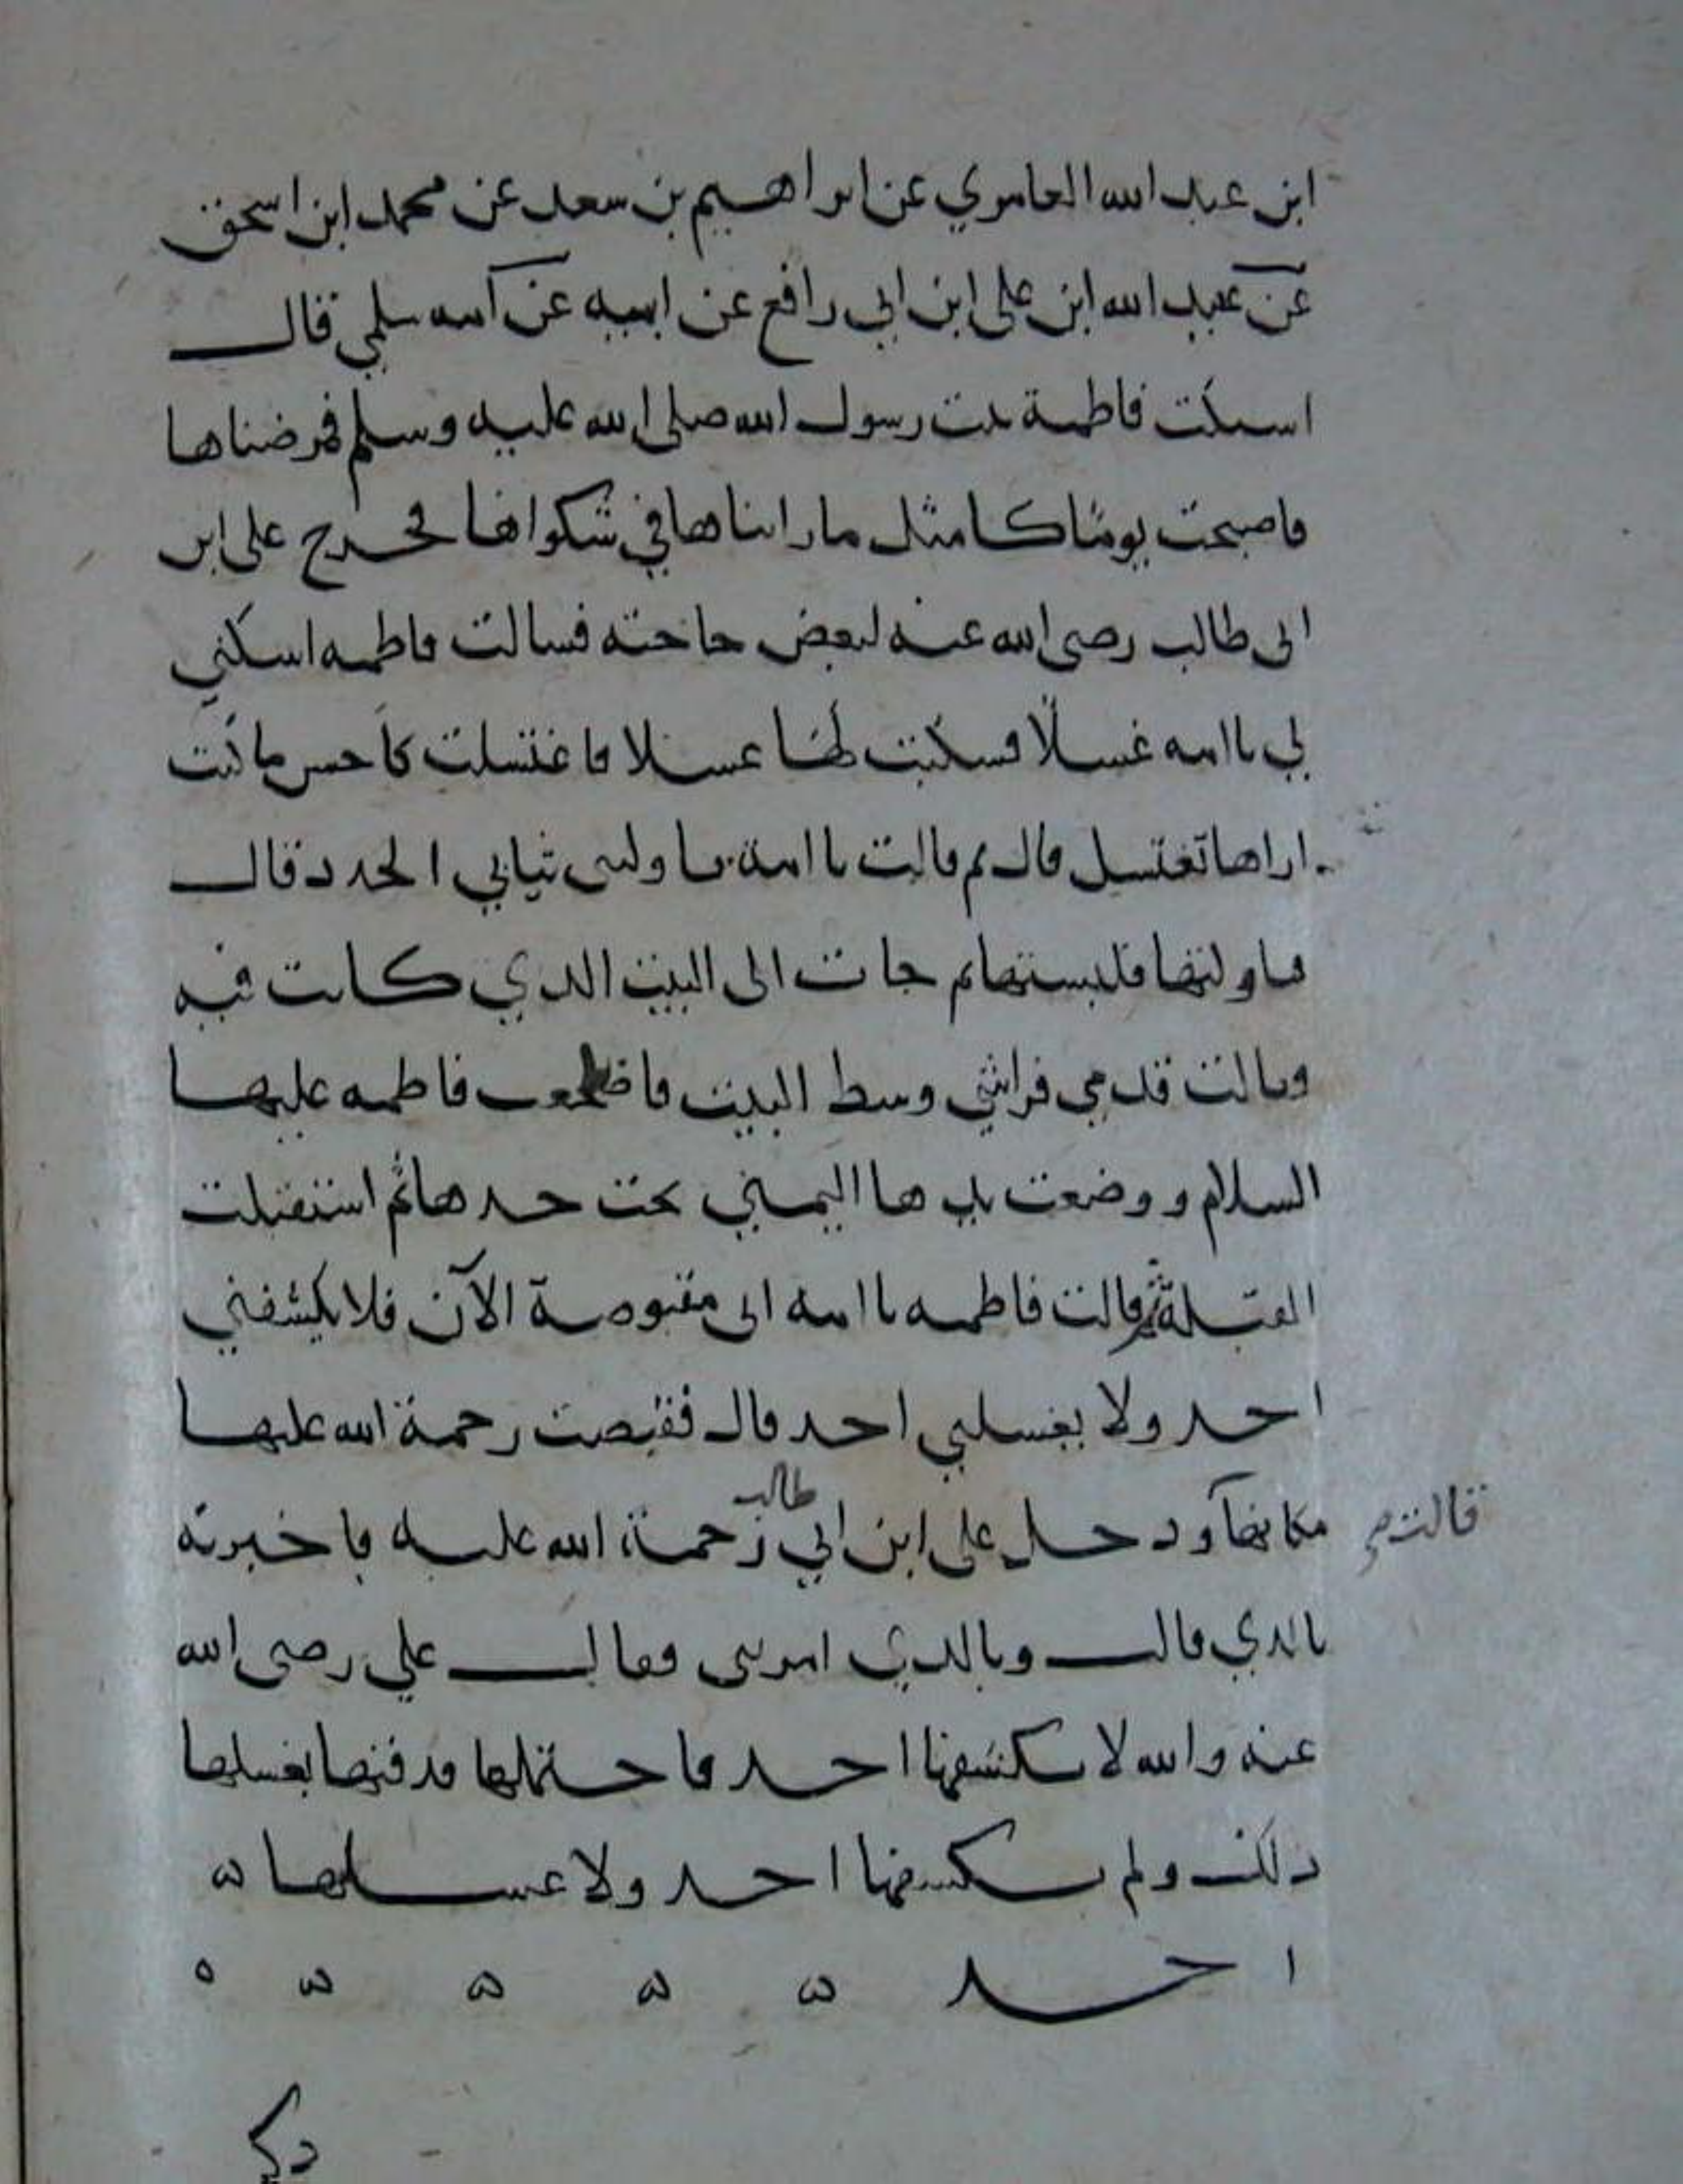 ابن عبد الله العامري عن ابراهيم بن سعد عن محمد ابن اسحق
عن عبيد الله ابن علي ابن ابي رافع عن ابيه عن امه سلمي قال
اشتكت فاطمة بنت رسول الله صلى الله عليه وسلم فمرضناها
فاصبحت يوما كامثل ما رايناها في شكواها فخرج على ابن
ابى طالب رضى الله عنه لبعض حاجته فسالت فاطمه اسكبي
لي يا امه غسلا فسكبت لها غسلا فاغتسلت كاحسن ما كنت
اراها تغتسل قال ثم قالت يا امة ناولينى ثيابي الجدد قال
فناولتها فلبستها ثم جات الى البيت الذي كانت فيه
وقالت قدمي فراشي وسط البيت فاضجعت فاطمه عليها
السلام ووضعت يدها اليمني تحت خدها ثم استقبلت
القبلة ثم قالت فاطمه يا امه انى مقبوضة الآن فلا يكشفني
احد ولا يغسلني احد قال فقبضت رحمة الله عليها
مكانها ودخل على ابن ابي طالب رحمة الله عليه فاخبرته
قالت
بالذي قالت وبالذي امرتنى فقال علي رضى الله
عنه والله لا يكشفها احد فاحتملها فدفنها بغسلها
ذلك ولم يكشفها احد ولا غسلها ه
احد ه ه ه ه ه